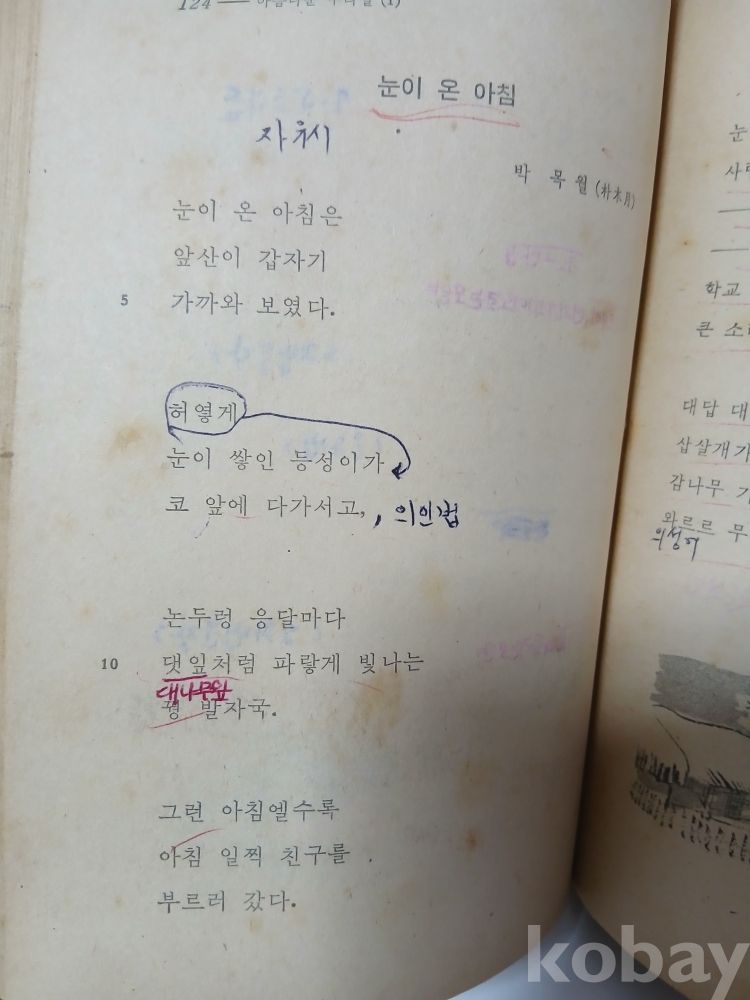 124 — 아름다운 우리말 (1)
눈이 온 아침
자유시
박 목 월 (朴木月)
눈이 온 아침은
앞산이 갑자기
5 가까와 보였다.
허옇게
눈이 쌓인 등성이가
코 앞에 다가서고, , 의인법
논두렁 응달마다
10 댓잎처럼 파랗게 빛나는
대나무잎
꿩 발자국.
그런 아침엘수록
아침 일찍 친구를
부르러 갔다.
눈
학교
큰 소리
대답 대
삽살개가
감나무 가
와르르 무
의성어
kobay